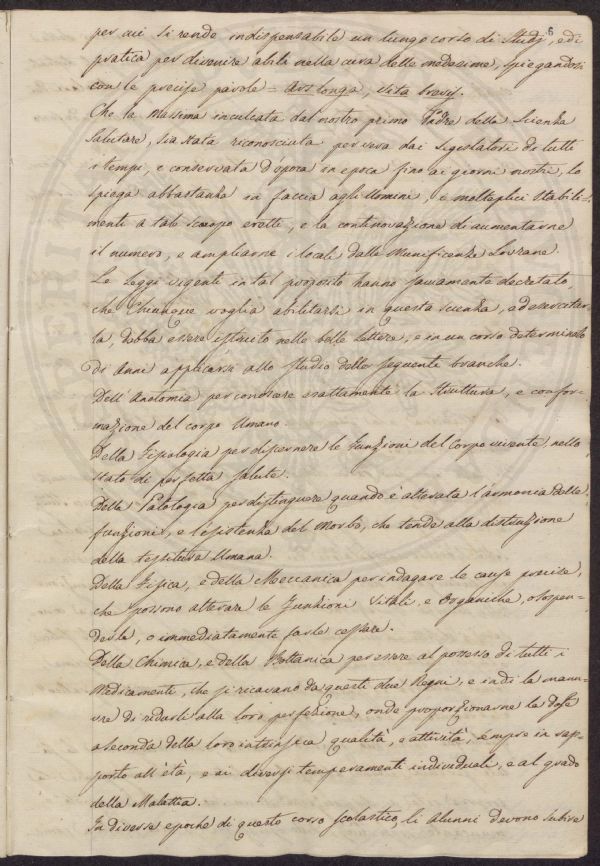 6
per cui si rende indispensabile un lungo corso di Studj, e di
pratica per divenire abili nella cura delle medesime, spiegandosi
con le precise parole = Ars longa, vita brevis.
Che la Massima inculcata dal nostro primo Padre della Scienza
Salutare, sia stata riconosciuta per vera dai Legislatori di tutti
i tempi, e conservata d'epoca in epoca fino ai giorni nostri, lo
spiega abbastanza in faccia agli Uomini, i molteplici Stabili=
menti a tale scopo eretti, e la continovazione di aumentarne
il numero, e ampliarne i locali dalla Munificenza Sovrana.
Le Leggi vigenti in tal proposito hanno saviamente decretato,
che Chiunque voglia abilitarsi in questa scienza, ad esercitar=
la, debba essere istruito nelle belle lettere, e in un corso determinato
di Anni applicarsi allo studio delle seguenti branche.
Dell'Anotomia per conoscere esattamente la Struttura, e confor=
mazione del corpo Umano.
Della Fisiologia per discernere le Funzioni del Corpo vivente nello
stato di perfetta Salute.
Della Patologia per distinguere quando è alterata l'armonia delle
funzioni, e l'esistenza del Morbo, che tende alla distruzione
della tessitura Umana.
Della Fisica, e della Meccanica per indagare le cause precise,
che possono alterare le Funzioni Vitali, e Organiche, o sospen=
derle, o immediatamente farle cessare.
Della Chimica, e della Bottanica per essere al possesso di tutti i
Medicamenti, che si ricavano da questi due Regni, e indi la manie=
re di ridurli alla loro perfezione, onde proporzionarne la dose
a seconda della loro intrinseca qualità, e attività, sempre in rap=
porto all'età, e ai diversi temperamenti individuali, e al grado
della Malattia.
In diverse epoche di questo corso scolastico, li alunni devono subire